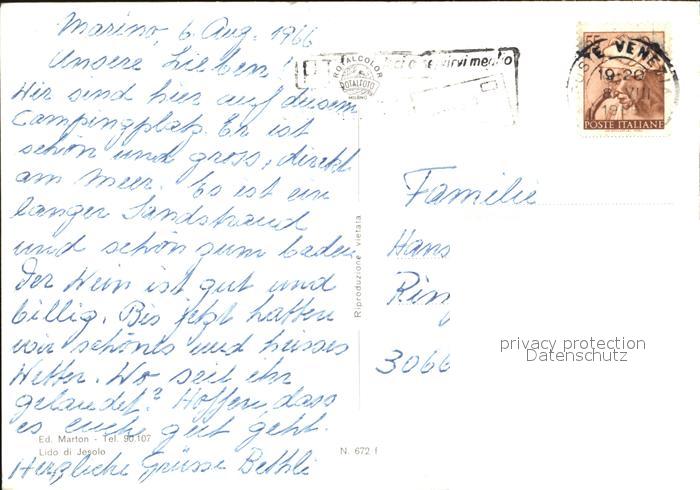 Marino, 6. Aug. 1966
Unsere Lieben!
Wir sind hier auf diesem
Campingplatz. Er ist
schön und gross, direkt
am Meer. Es ist ein
langer Sandstrand
und schön zum baden.
Der Wein ist gut und
billig. Bis jetzt hatten
wir schönes und heisses
Wetter. Wo seit ihr
gelandet? Hoffen, dass
es euch gut geht.
Herzliche Grüsse Bethli
Ed. Marton - Tel. 90.107
Lido di Jesolo
N. 672 f
Riproduzione vietata
ROTALCOLOR
ROTALFOTO
MILANO
servirvi meglio
POSTE VENEZIA
19-20
VIII
55
POSTE ITALIANE
Familie
Hans
Rin
3066
privacy protection
Datenschutz